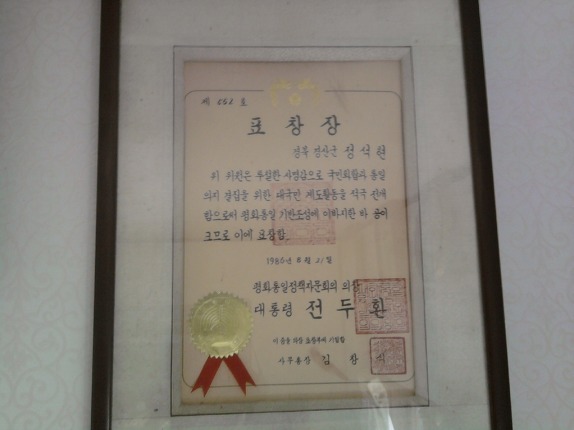 제 662 호
표 창 장
경북 경산군 정 석 현
위 위원은 투철한 사명감으로 국민화합과 통일
의지 결집을 위한 대국민 계도활동을 적극 전개
함으로써 평화통일 기반조성에 이바지한 바 공이
크므로 이에 표창함
1986년 월 21일
평화통일정책자문회의 의장
대통령 전 두 환
이 증을 표창부에 기입함
사무총장 김 창 식